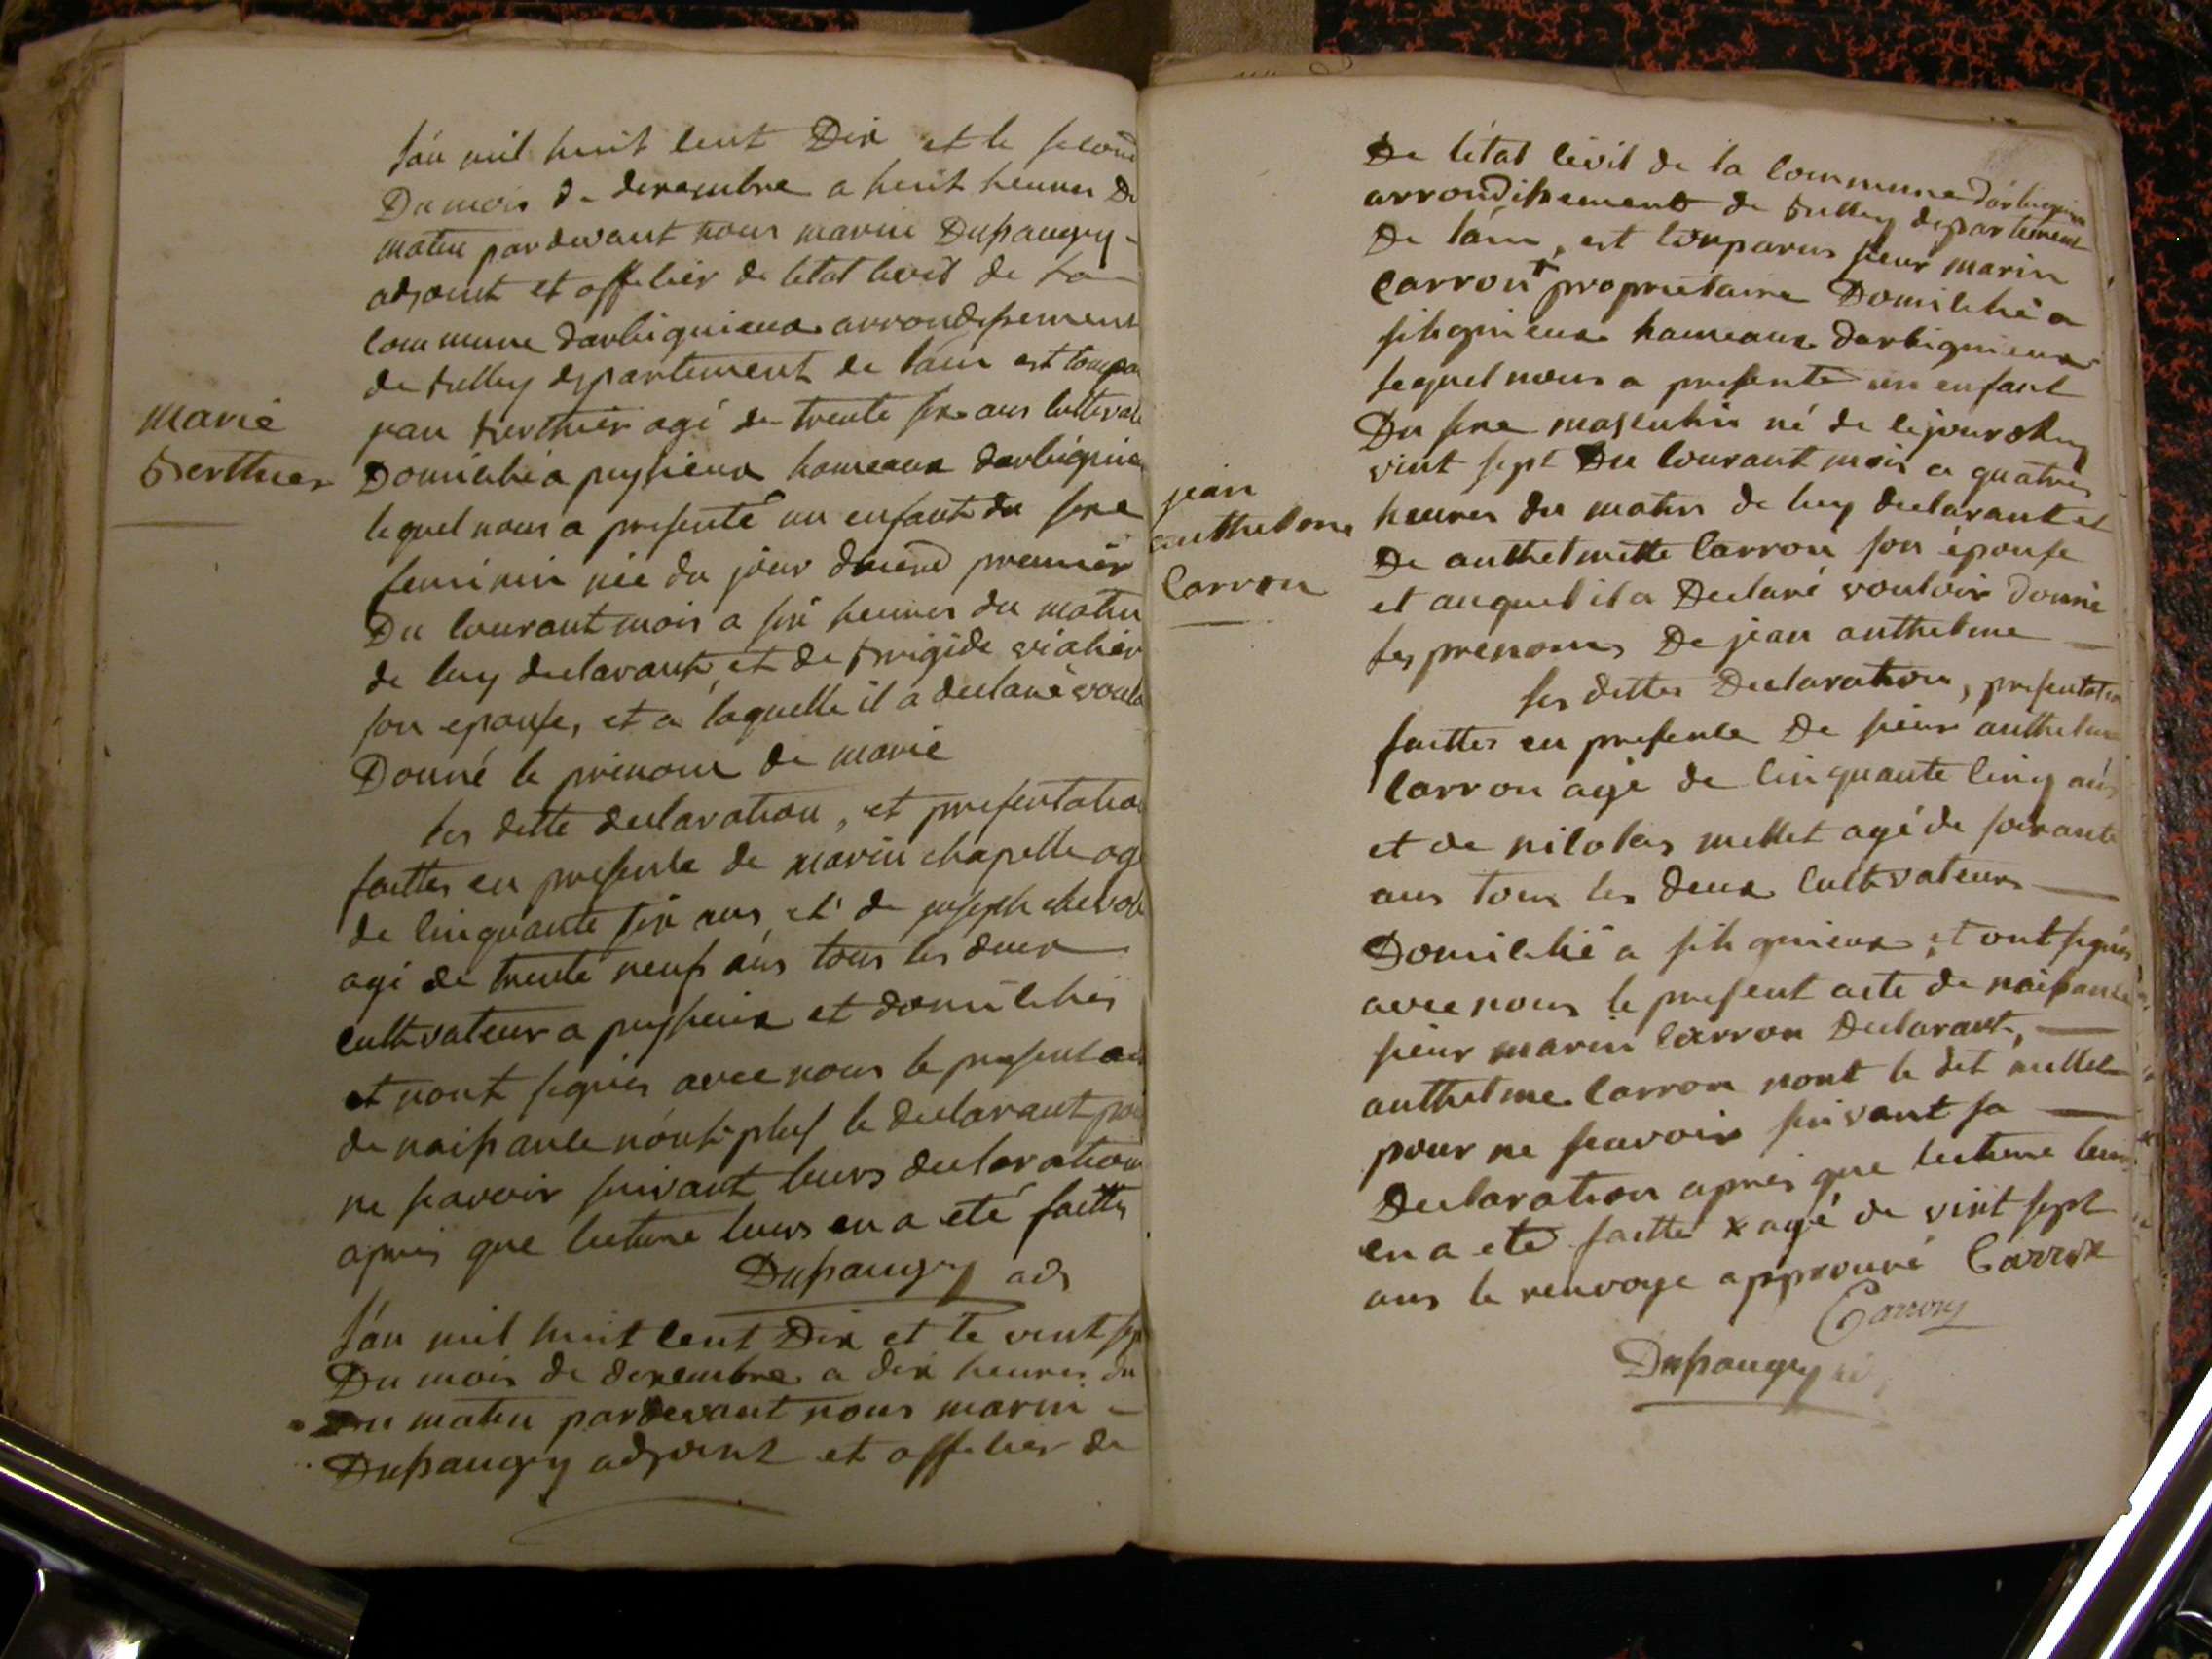 marie
Berthier
lan mil huit cent Dix et le second
Du mois de decembre a huit heures De
matin pardevant nous marin Dupaugey
adjoint et officier de letat civil de la
commune darbignieux arrondissement
de belley departement de lain est compa
jean berthier agé de trente six ans cultivate
Domicilié a peyzieux hameaux darbignieu
lequel nous a presenté un enfant du sexe
feminin née du jour dhiere premier
Du courant mois a six heures du matin
de luy declarant, et de brigide
son epouse, et a laquelle il a declaré voulo
Donné le prénom de marie
les ditte declaration, et presentation
faittes en presence de marin chapelle agé
de cinquante six ans et de joseph
agé de trente neuf ans tous les deux
cultivateur a peyzieux et domiciliés
et nont signés avec nous le present ac
de naissance nont plus le declarant pou
ne scavoir suivant leurs declaration
apres que lecture leurs en a eté faitte
Dupaugey adj
lan mil huit cent Dix et le vint sep
Du mois de decembre a dix heures du
Du matin pardevant nous marin
Dupaugey adjoint et officier de
jean
anthelme
Carron
De létat civil de la commune darbignieu
arrondissement de belley departement
De lain, est comparus sieur marin
Carron + proprietaire Domicilié a
silignieux hameaux darbignieux
lequel nous a presenté un enfant
Du sexe masculin né de cejourdhuy
vint sept Du courant mois a quatres
heures du matin de luy declarant et
De anthelmette Carron son épouse
et auquel il a Declaré vouloir donné
les prenoms De jean anthelme
les dittes Declaration, presentation
faittes en presence De sieur anthelme
Carron agé de cinquante cinq ans
et de nicolas mettet agé de soixante
ans tous les deux Cultivateurs
Domicilié a silignieux, et ont signés
avec nous le present acte de naissance
sieur marin Carron Declarant,
anthelme Carron nont le dit mettet
pour ne scavoir suivant sa
Declaration apres que lecture leurs
en a eté faitte x agé de vint sept
ans le renvoye approuvé Carron
Carron
Dupaugey